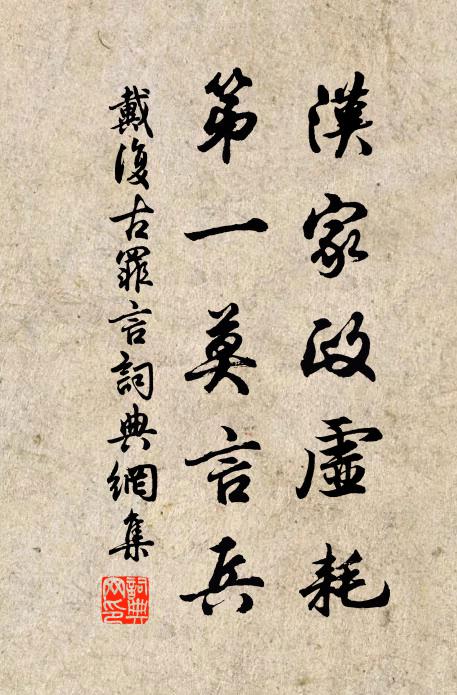 漢家政虛耗
第一莫言兵
戴復古罪言詞典網集
詞典网印